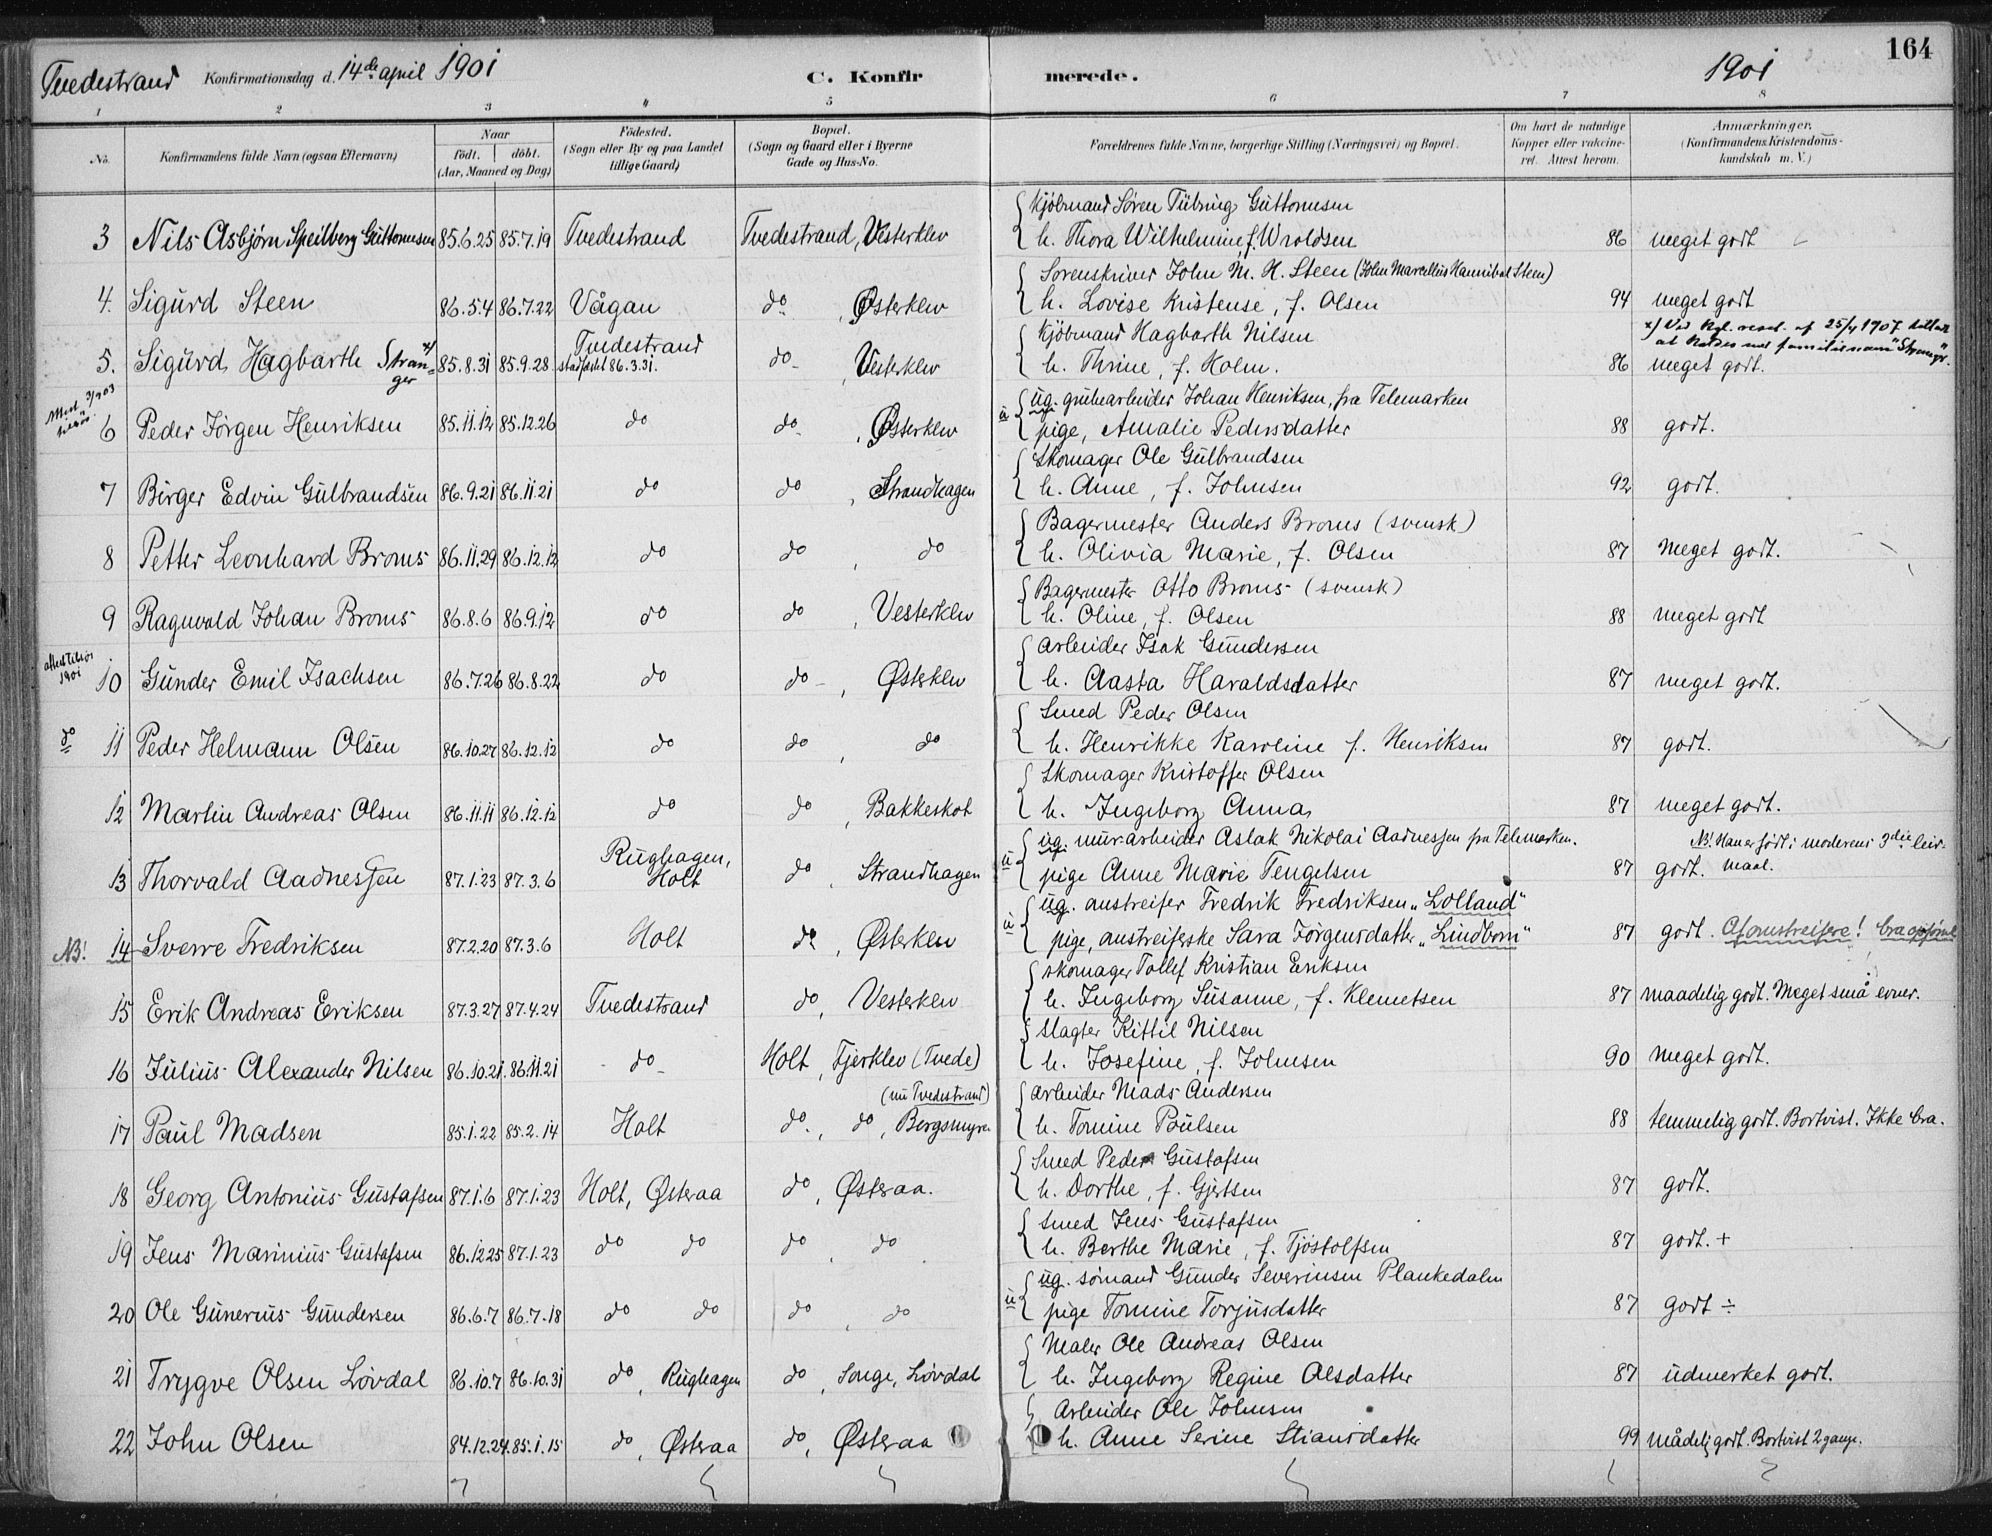 Tvedestrand Konfirmationsdag d. 14de april 1901 C. Konfirmerede. 1901 164
1 2 3 4 5 6 7 8
No. Konfirmandens fulde Navn (ogsaa Efternavn) Naar født. døbt. (Aar, Maaned og Dag) Fødested. (Sogn eller By og paa Landet tillige Gaard) Bopæl. (Sogn og Gaard eller i Byerne Gade og Hus-No. Forældrenes fulde Navne, borgerlige Stilling (Næringsvei) og Bopæl. Om havt de naturlige Kopper eller vaccineret. Attest herom. Anmærkninger. (Konfirmandens Kristendomskundskab m. V.)
Kjöbmand Sören Tübring Guttormsen
3 Nils Asbjørn Speilberg Guttormsen 85.6.25 85.7.19 Tvedestrand Tvedestrand, Vesterklev h. Thora Wilhelmine f. Wroldsen 86 meget godt
Sorenskriver John M. H. Steen (John Marcellius Hannibal Steen)
4. Sigurd Steen 86.5.4 86.7.22 Vågan do Østerklev h. Lovise Kristense, f. Olsen 94 meget godt
Kjöbmand Hagbarth Nilsen x) Ved Kgl. resol. af 25/4 1907 tilladt
5. Sigurd Hagbarth Stranger x) 85.8.31 85.9.28 Tvedestrand stadfæstet 86.3.31. do Vesterklev h. Thrine, f. Holm. 86 meget godt. familienavn "Stranger".
3/1903
ug. grubearbeider Johan Henriksen, fra Telemarken
6 Peder Jörgen Henriksen 85.11.12 85.12.26 do do, Østerklev u pige, Amalie Pedersdatter 88 godt.
Skomager Ole Gulbrandsen
7 Birger Edvin Gulbrandsen 86.9.21 86.11.21 do do, Strandhagen h. Anne, f. Johnsen 92 godt.
Bagermester Anders Broms (svensk)
8 Petter Leonhard Broms 86.11.29 86.12.12 do do, do h. Olivia Marie, f. Olsen 87 meget godt.
Bagermester Otto Broms (svensk)
9 Ragnvald Johan Broms 86.8.6 86.9.12 do do, Vesterklev h. Oline, f. Olsen 88 meget godt
1901 arbeider Isak Gundersen
10 Gunder Emil Isachsen 86.7.26 86.8.22 do do, Østerklev h. Aasta Haraldsdatter 87 meget godt.
Smed Peder Olsen
do 11 Peder Helmann Olsen 86.10.27 86.12.12 do do, do h. Henrikke Karoline f. Henriksen 87 godt.
Skomager Kristoffer Olsen
12 Martin Andreas Olsen 86.11.11 86.12.12 do do, Bakkeskot h. Ingeborg Anna 87 meget godt.
ug. murarbeider Aslak Nikolai Aadnessen fra Telemarken. NB! Han er født i moderens 3die leiermaal.
13 Thorvald Aadnessen 87.1.23 87.3.6 Rughagen, Holt do, Strandhagen u pige Anne Marie Tengelsen 87 godt.
ug. austreifer Fredrik Fredriksen "Lolland"
NB! 14 Sverre Fredriksen 87.2.20 87.3.6 Holt do, Østerklev u pige, austreiferske Sara Jörgensdatter "Lindbom" 87 godt.
skomager Tollef Kristian Eriksen
15 Erik Andreas Eriksen 87.3.27 87.4.24 Tvedestrand do, Vesterklev h. Ingeborg Susanne, f. Klemetsen 87 maadelig godt. Meget små evner.
slagter Kittil Nilsen
16 Julius Alexander Nilsen 86.10.21. 86.11.21 do Holt, Fjerklev (Tvede) h. Josefine, f. Johnsen 90 meget godt.
(nu Tvedestrand) arbeider Mads Andersen
17 Paul Madsen 85.1.22 85.2.14 Holt do., do, Bergsmyren h. Tomine Poulsen 88 temmelig godt. Bortvist. Ikke bra.
Smed Peder Gustafsen
18 Georg Antonius Gustafsen 87.1.6 87.1.23 Holt, Østeraa do, Østeraa. h. Dorthe, f. Gjertsen 87 godt.
smed Jens Gustafsen
19 Jens Marinius Gustafsen 86.12.25 87.1.23 do do do, do h. Berthe Marie, f. Tjöstolfsen 87 godt. +
ug. sömand Gunder Severinsen Plankedalen
20 Ole Gunerius Gundersen 86.6.7 86.7.18 do do do, do u pige Tomine Torjusdatter 87 godt ÷
Maler Ole Andreas Olsen
21 Trygve Olsen Lövdal 86.10.7 86.10.31 do, Rughagen do, Songe, Lövdal h. Ingeborg Regine Olsdatter 87 udmerket godt.
Arbeider Ole Johnsen
22 John Olsen 84.12.24. 85.1.15 do, Østeraa do, Østeraa h. Anne Serine Stiansdatter 99 mådelig godt. Bortvist 2 gange.